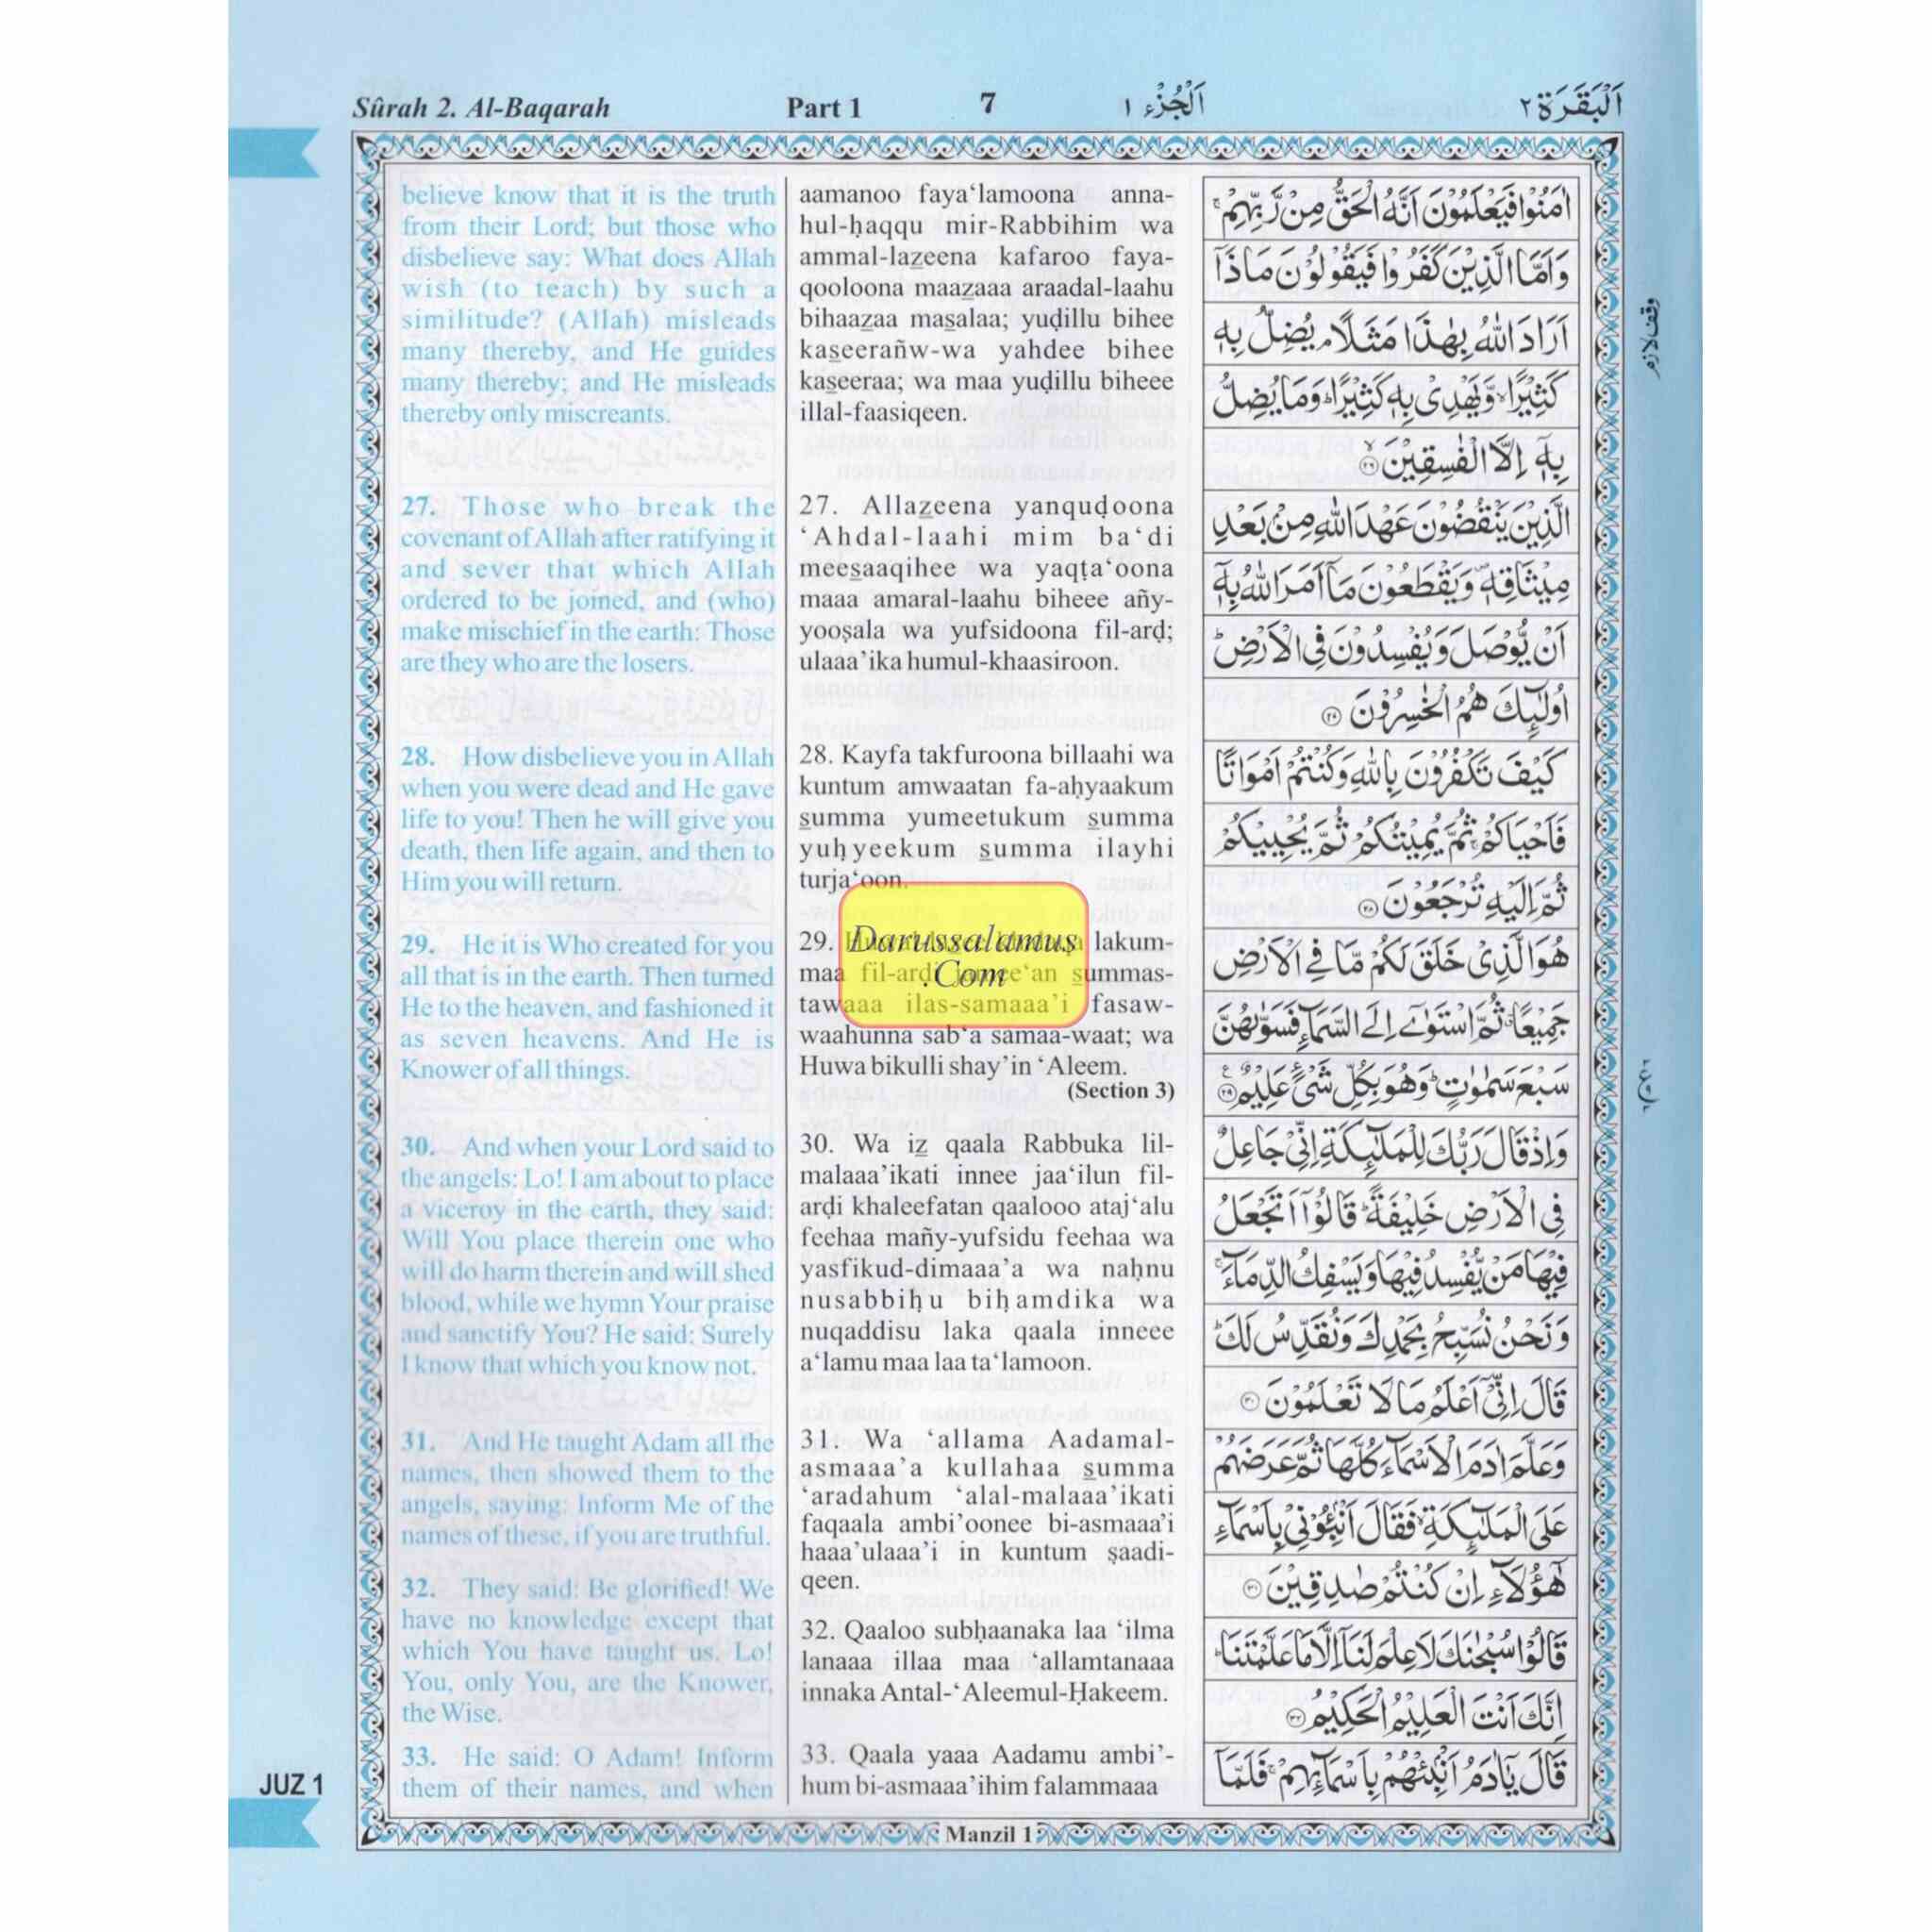 Sûrah 2. Al-Baqarah Part 1 7 اَلْجُزْء ١ اَلْبَقَرَة ٢
believe know that it is the truth
from their Lord; but those who
disbelieve say: What does Allah
wish (to teach) by such a
similitude? (Allah) misleads
many thereby, and He guides
many thereby; and He misleads
thereby only miscreants.
27. Those who break the
covenant of Allah after ratifying it
and sever that which Allah
ordered to be joined, and (who)
make mischief in the earth: Those
are they who are the losers.
28. How disbelieve you in Allah
when you were dead and He gave
life to you! Then he will give you
death, then life again, and then to
Him you will return.
29. He it is Who created for you
all that is in the earth. Then turned
He to the heaven, and fashioned it
as seven heavens. And He is
Knower of all things.
30. And when your Lord said to
the angels: Lo! I am about to place
a viceroy in the earth, they said:
Will You place therein one who
will do harm therein and will shed
blood, while we hymn Your praise
and sanctify You? He said: Surely
I know that which you know not.
31. And He taught Adam all the
names, then showed them to the
angels, saying: Inform Me of the
names of these, if you are truthful.
32. They said: Be glorified! We
have no knowledge except that
which You have taught us. Lo!
You, only You, are the Knower,
the Wise.
33. He said: O Adam! Inform
them of their names, and when
aamanoo faya‘lamoona anna-
hul-ḥaqqu mir-Rabbihim wa
ammal-lazeena kafaroo faya-
qooloona maaẕaaa araadal-laahu
bihaaẕaa mas̱alaa; yuḍillu bihee
kas̱eerañw-wa yahdee bihee
kas̱eeraa; wa maa yuḍillu biheee
illal-faasiqeen.
27. Allaẕeena yanquḍoona
‘Ahdal-laahi mim ba‘di
mees̱aaqihee wa yaqṭa‘oona
maaa amaral-laahu biheee añy-
yooṣala wa yufsidoona fil-arḍ;
ulaaa’ika humul-khaasiroon.
28. Kayfa takfuroona billaahi wa
kuntum amwaatan fa-aḥyaakum
s̱umma yumeetukum s̱umma
yuḥyeekum s̱umma ilayhi
turja‘oon.
29. lakum-
maa fil-arḍi jamee‘an s̱ummas-
tawaaa ilas-samaaa’i fasaw-
waahunna sab‘a samaa-waat; wa
Huwa bikulli shay’in ‘Aleem.
(Section 3)
30. Wa iẕ qaala Rabbuka lil-
malaaa’ikati innee jaa‘ilun fil-
arḍi khaleefatan qaalooo ataj‘alu
feehaa mañy-yufsidu feehaa wa
yasfikud-dimaaa’a wa naḥnu
nusabbiḥu biḥamdika wa
nuqaddisu laka qaala inneee
a‘lamu maa laa ta‘lamoon.
31. Wa ‘allama Aadamal-
asmaaa’a kullahaa s̱umma
‘aradahum ‘alal-malaaa’ikati
faqaala ambi’oonee bi-asmaaa’i
haaa’ulaaa’i in kuntum ṣaadi-
qeen.
32. Qaaloo subḥaanaka laa ‘ilma
lanaaa illaa maa ‘allamtanaaa
innaka Antal-‘Aleemul-Ḥakeem.
33. Qaala yaaa Aadamu ambi’-
hum bi-asmaaa’ihim falammaaa
Darussalamus
.Com
اٰمَنُوْا فَيَعْلَمُوْنَ اَنَّهُ الْحَقُّ مِنْ رَّبِّهِمْ ۚ
وَاَمَّا الَّذِيْنَ كَفَرُوْا فَيَقُوْلُوْنَ مَاذَآ
اَرَادَ اللّٰهُ بِهٰذَا مَثَلًا ۘ يُضِلُّ بِهٖ
كَثِيْرًا ۙ وَّيَهْدِيْ بِهٖ كَثِيْرًا ؕ وَمَا يُضِلُّ
بِهٖٓ اِلَّا الْفٰسِقِيْنَ ۙ ۲۶
الَّذِيْنَ يَنْقُضُوْنَ عَهْدَ اللّٰهِ مِنْۢ بَعْدِ
مِيْثَاقِهٖ ۪ وَيَقْطَعُوْنَ مَآ اَمَرَ اللّٰهُ بِهٖٓ
اَنْ يُّوْصَلَ وَيُفْسِدُوْنَ فِى الْاَرْضِ ؕ
اُولٰٓئِكَ هُمُ الْخٰسِرُوْنَ ۲۷
كَيْفَ تَكْفُرُوْنَ بِاللّٰهِ وَكُنْتُمْ اَمْوَاتًا
فَاَحْيَاكُمْ ۚ ثُمَّ يُمِيْتُكُمْ ثُمَّ يُحْيِيْكُمْ
ثُمَّ اِلَيْهِ تُرْجَعُوْنَ ۲۸
هُوَ الَّذِيْ خَلَقَ لَكُمْ مَّا فِى الْاَرْضِ
جَمِيْعًا ۗ ثُمَّ اسْتَوٰٓى اِلَى السَّمَآءِ فَسَوّٰىهُنَّ
سَبْعَ سَمٰوٰتٍ ؕ وَهُوَ بِكُلِّ شَىْءٍ عَلِيْمٌ ۲۹
وَاِذْ قَالَ رَبُّكَ لِلْمَلٰٓئِكَةِ اِنِّىْ جَاعِلٌ
فِى الْاَرْضِ خَلِيْفَةً ؕ قَالُوْٓا اَتَجْعَلُ
فِيْهَا مَنْ يُّفْسِدُ فِيْهَا وَيَسْفِكُ الدِّمَآءَ ۚ
وَنَحْنُ نُسَبِّحُ بِحَمْدِكَ وَنُقَدِّسُ لَكَ ؕ
قَالَ اِنِّىْٓ اَعْلَمُ مَا لَا تَعْلَمُوْنَ ۳۰
وَعَلَّمَ اٰدَمَ الْاَسْمَآءَ كُلَّهَا ثُمَّ عَرَضَهُمْ
عَلَى الْمَلٰٓئِكَةِ ۙ فَقَالَ اَنْۢبِـُٔوْنِىْ بِاَسْمَآءِ
هٰٓؤُلَآءِ اِنْ كُنْتُمْ صٰدِقِيْنَ ۳۱
قَالُوْا سُبْحٰنَكَ لَا عِلْمَ لَنَآ اِلَّا مَا عَلَّمْتَنَا ؕ
اِنَّكَ اَنْتَ الْعَلِيْمُ الْحَكِيْمُ ۳۲
قَالَ يٰٓاٰدَمُ اَنْۢبِئْهُمْ بِاَسْمَآئِهِمْ ۚ فَلَمَّآ
وقف لازم
JUZ 1
Manzil 1